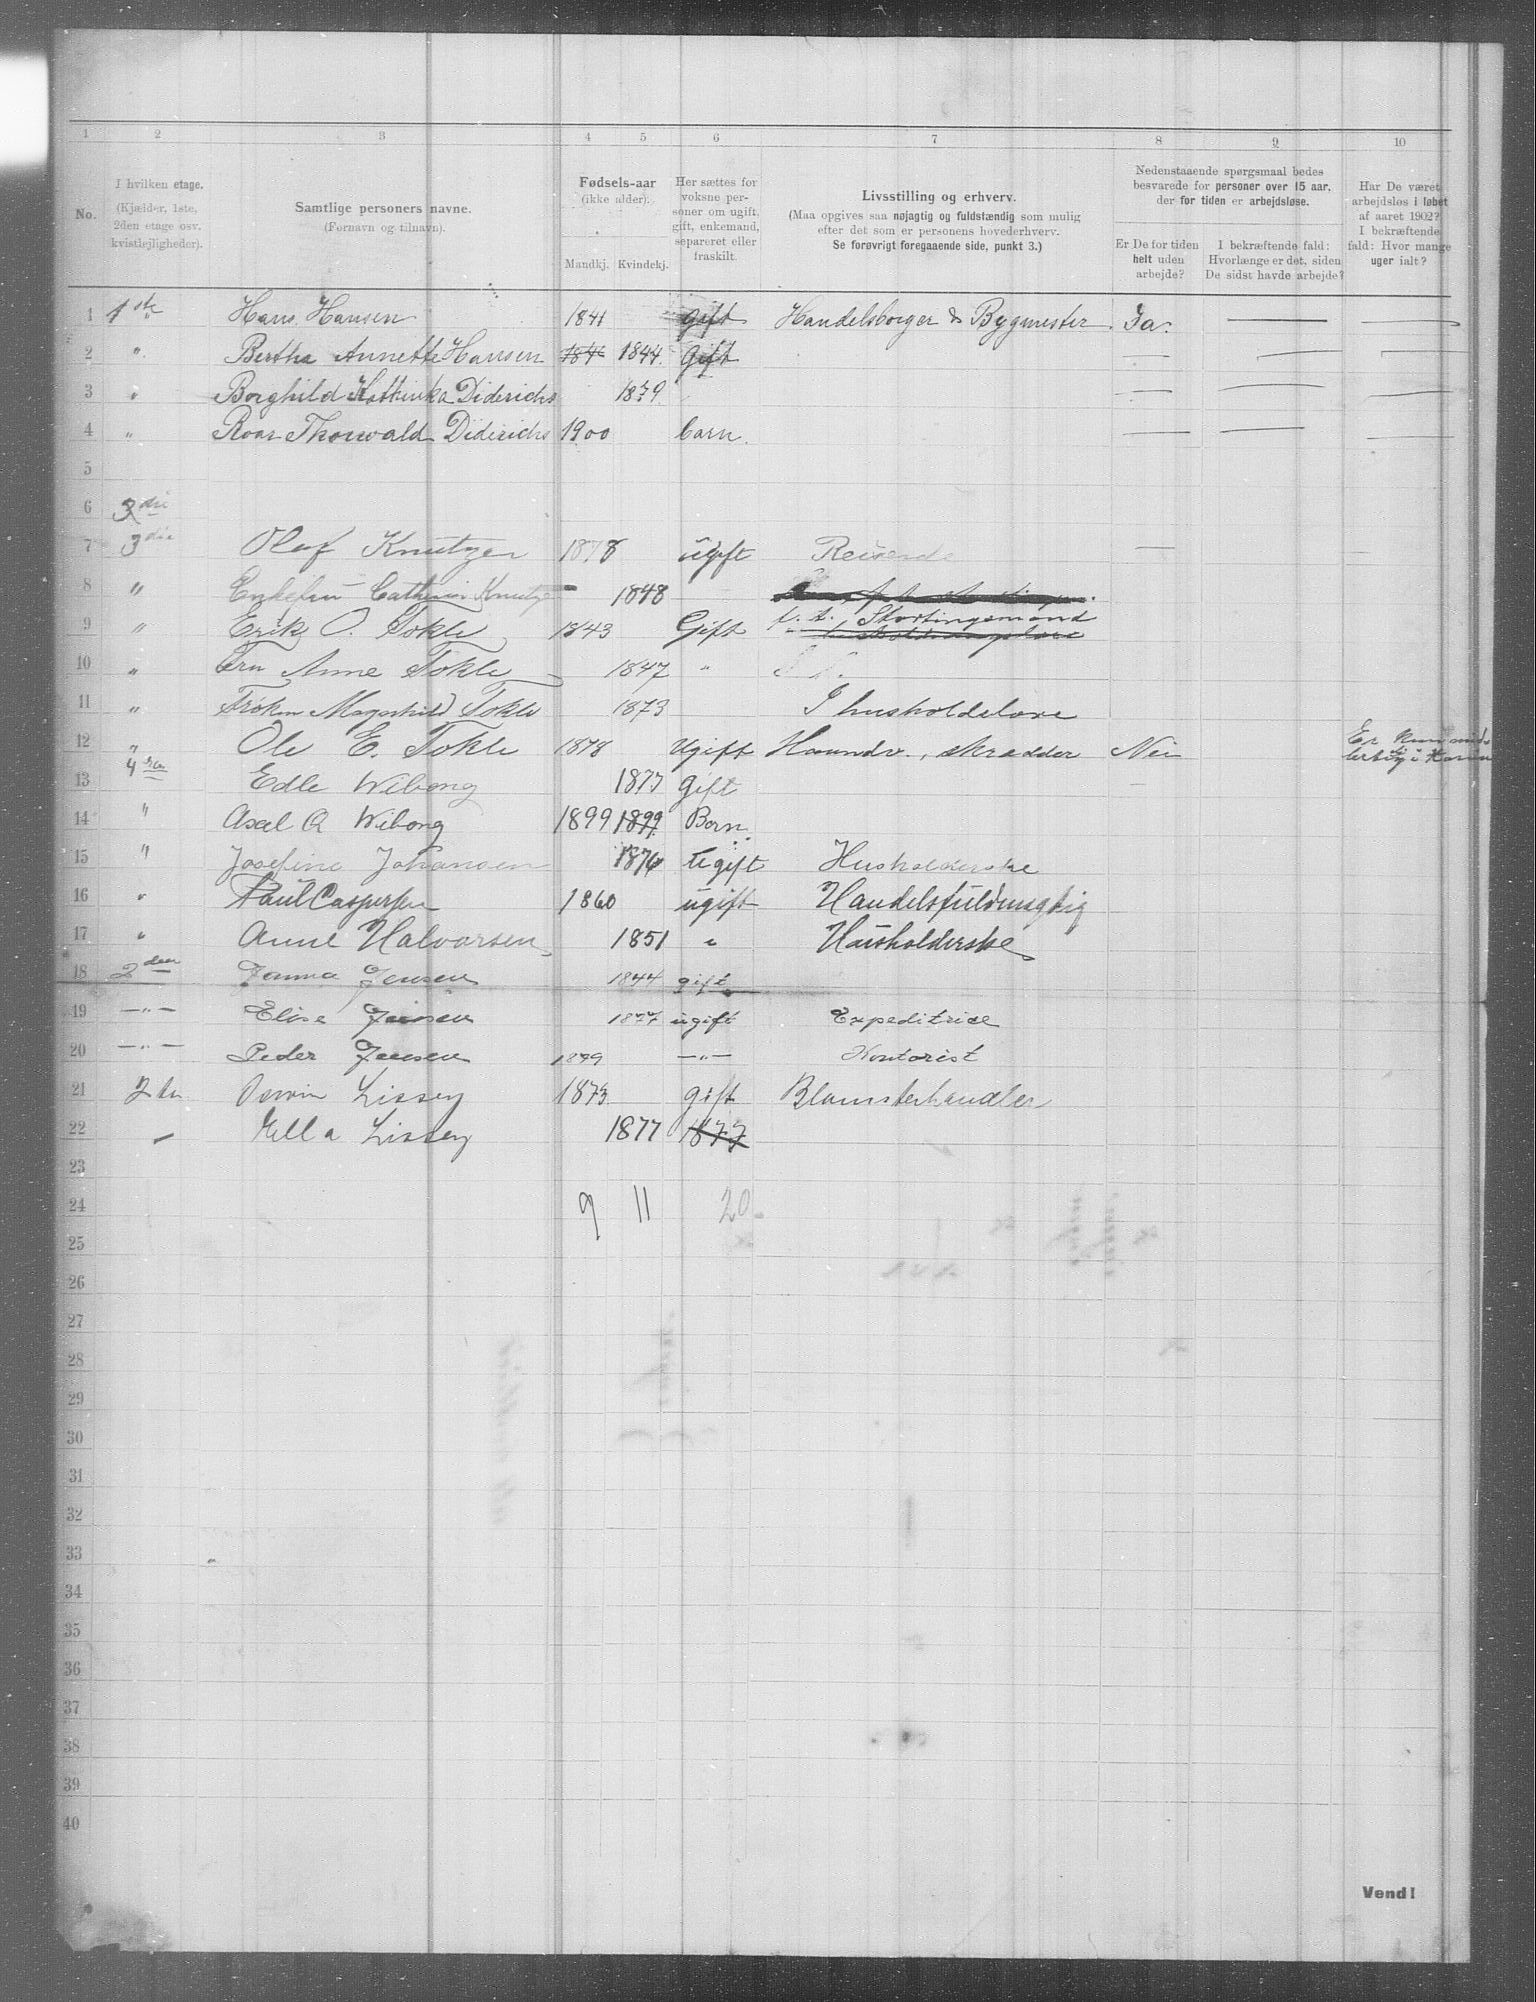 1 2 3 4 5 6 7 8 9 10
No.
I hvilken etage.
(Kjælder, 1ste, 2den etage osv. kvistlejligheder).
Samtlige personers navne.
(Fornavn og tilnavn).
Fødsels-aar
(ikke alder).
Mandkj. Kvindekj.
Her sættes for voksne personer om ugift, gift, enkemand, separeret eller fraskilt.
Livsstilling og erhverv.
(Maa opgives saa nøjagtig og fuldstændig som mulig efter det som er personens hovederhverv.
Se forøvrigt foregaaende side, punkt 3.)
Nedenstaaende spørgsmaal bedes besvarede for personer over 15 aar, der for tiden er arbejdsløse.
Er De for tiden helt uden arbejde?
I bekræftende fald: Hvorlænge er det, siden De sidst havde arbejde?
Har De været arbejdsløs i løbet af aaret 1902? I bekræftende fald: Hvor mange uger ialt?
1 1ste Hans Hansen 1841 gift Handelsborger & Bygmester. Ja. — —
2 " Bertha Annette Hansen 1846 1844. Gift — — —
3 " Borghild Kathinka Diderichs 1879. — — —
4 " Roar Thorwald Diderichs 1900 barn. — — —
5
6 3die
7 3die Olaf Knutzen 1878 ugift Reisende —
8 " Enkefru Cathrine 1848
9 " Erik O. Tokle 1843 Gift f. t. Stortingsmand
10 " Fru Anne Tokle 1847 "
11 " Frøken Magnhild Tokle 1873 I husholdelore
12 " Ole E. Tokle 1878 Ugift Haandv., skrædder Nei Er
13 4de Edle Wiborg 1877 gift
14 " Axel A Wiborg 1899 1899 Born
15 " Josefine Johansen 1876 Ugift Husholderske
16 " Paul Caspersen 1860 ugift Handelsfuldmægtig
17 " Anne Halvorsen 1851 " Husholderske
18 2den Janna Jensen 1844 gift
19 —"— Elise Jensen 1877 ugift Expeditrice
20 —"— Peder Jensen 1879 —"— Kontorist
21 2den Lissey 1873 gift Blomsterhandler
22 " Ella Lissey 1877 1877
23
24 9 11 20
25
26
27
28
29
30
31
32
33
34
35
36
37
38
39
40
Vend!